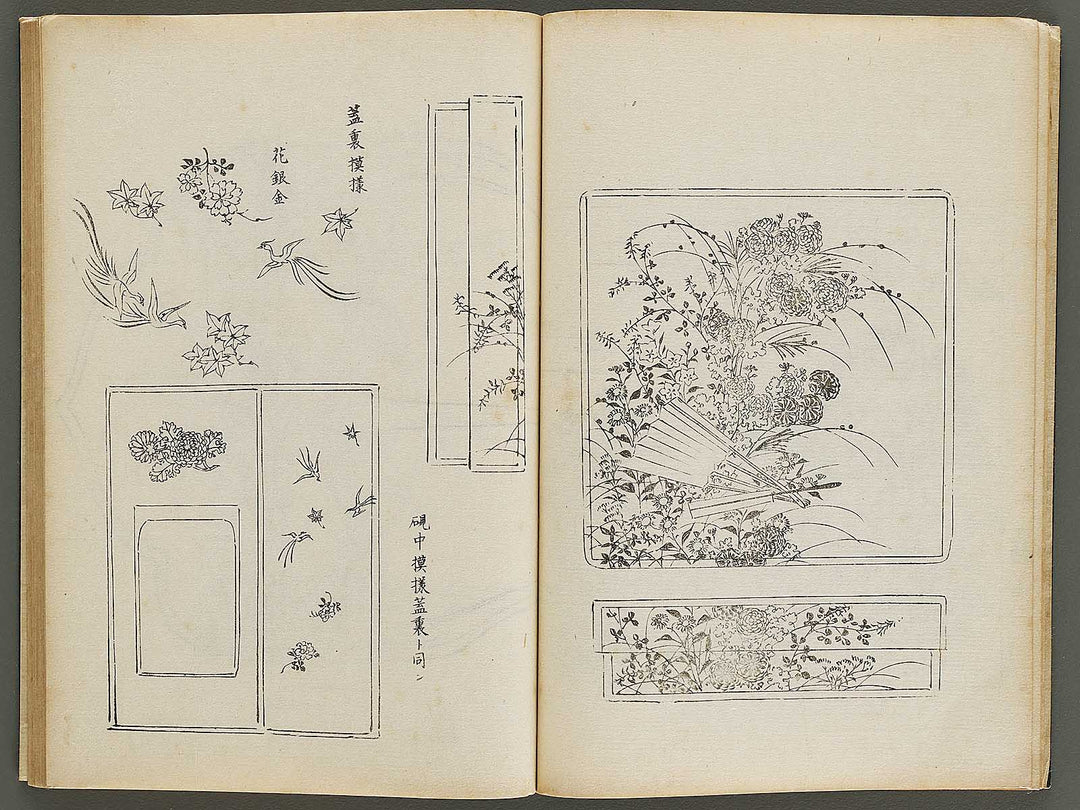 蓋裏模様
花銀金
硯中模様蓋裏ト同シ